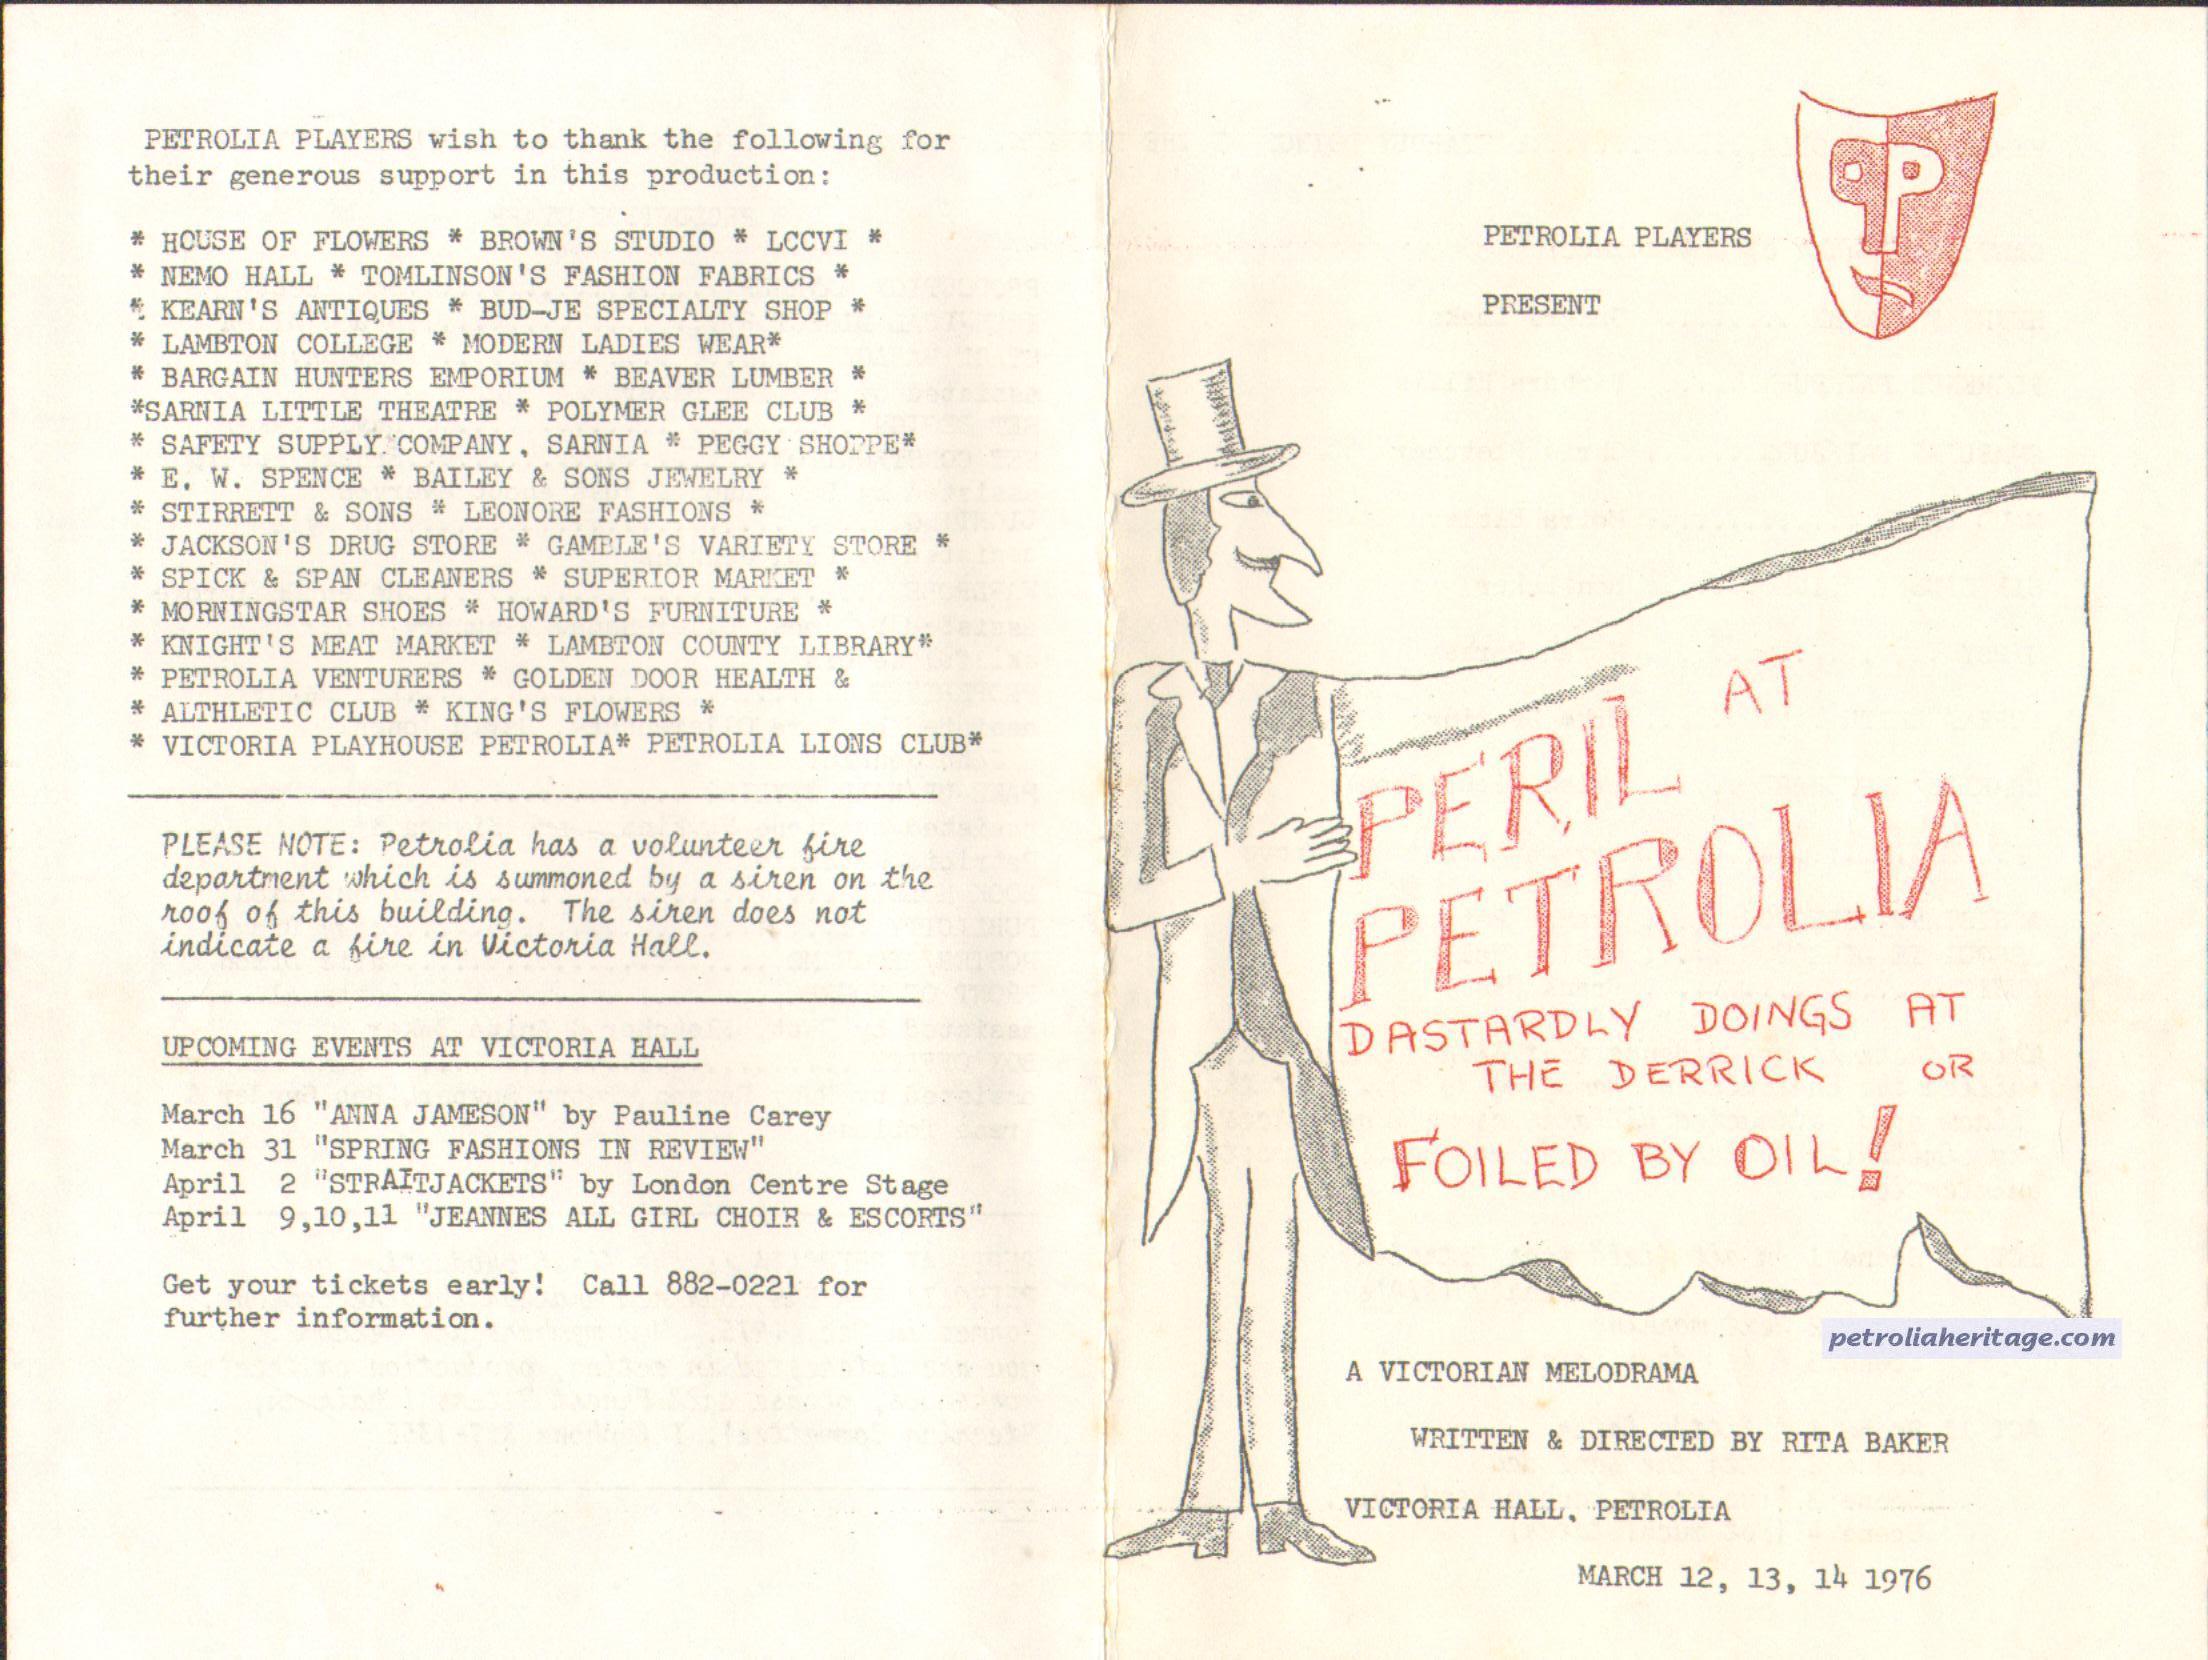 PETROLIA PLAYERS wish to thank the following for
their generous support in this production:
* HOUSE OF FLOWERS * BROWN'S STUDIO * LCCVI *
* NEMO HALL * TOMLINSON'S FASHION FABRICS *
* KEARN'S ANTIQUES * BUD-JE SPECIALTY SHOP *
* LAMBTON COLLEGE * MODERN LADIES WEAR*
* BARGAIN HUNTERS EMPORIUM * BEAVER LUMBER *
*SARNIA LITTLE THEATRE * POLYMER GLEE CLUB *
* SAFETY SUPPLY COMPANY, SARNIA * PEGGY SHOPPE*
* E. W. SPENCE * BAILEY & SONS JEWELRY *
* STIRRETT & SONS * LEONORE FASHIONS *
* JACKSON'S DRUG STORE * GAMBLE'S VARIETY STORE *
* SPICK & SPAN CLEANERS * SUPERIOR MARKET *
* MORNINGSTAR SHOES * HOWARD'S FURNITURE *
* KNIGHT'S MEAT MARKET * LAMBTON COUNTY LIBRARY*
* PETROLIA VENTURERS * GOLDEN DOOR HEALTH &
* ALTHLETIC CLUB * KING'S FLOWERS *
* VICTORIA PLAYHOUSE PETROLIA* PETROLIA LIONS CLUB*
PLEASE NOTE: Petrolia has a volunteer fire
department which is summoned by a siren on the
roof of this building. The siren does not
indicate a fire in Victoria Hall.
UPCOMING EVENTS AT VICTORIA HALL
March 16 "ANNA JAMESON" by Pauline Carey
March 31 "SPRING FASHIONS IN REVIEW"
April 2 "STRAITJACKETS" by London Centre Stage
April 9,10,11 "JEANNES ALL GIRL CHOIR & ESCORTS"
Get your tickets early! Call 882-0221 for
further information.
PETROLIA PLAYERS
PRESENT
PERIL AT
PETROLIA
DASTARDLY DOINGS AT
THE DERRICK OR
FOILED BY OIL!
petroliaheritage.com
A VICTORIAN MELODRAMA
WRITTEN & DIRECTED BY RITA BAKER
VICTORIA HALL, PETROLIA
MARCH 12, 13, 14 1976